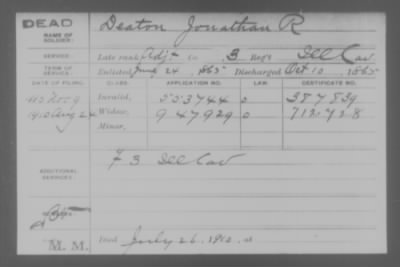 DEAD
NAME OF SOLDIER: Deaton Jonathan R
SERVICE: Late rank Adjt Co 3 Reg't Ill Cav
TERM OF SERVICE: Enlisted June 24, 1865 Discharged Oct 10, 1865
DATE OF FILING. CLASS. APPLICATION NO. LAW. CERTIFICATE NO.
Invalid, 553744 0 387839
1910 Aug 24 Widow, 947929 0 712728
Minor,
ADDITIONAL SERVICES: F 3 Ill Cav
REMARKS:
M. M. Died July 26, 1910, at